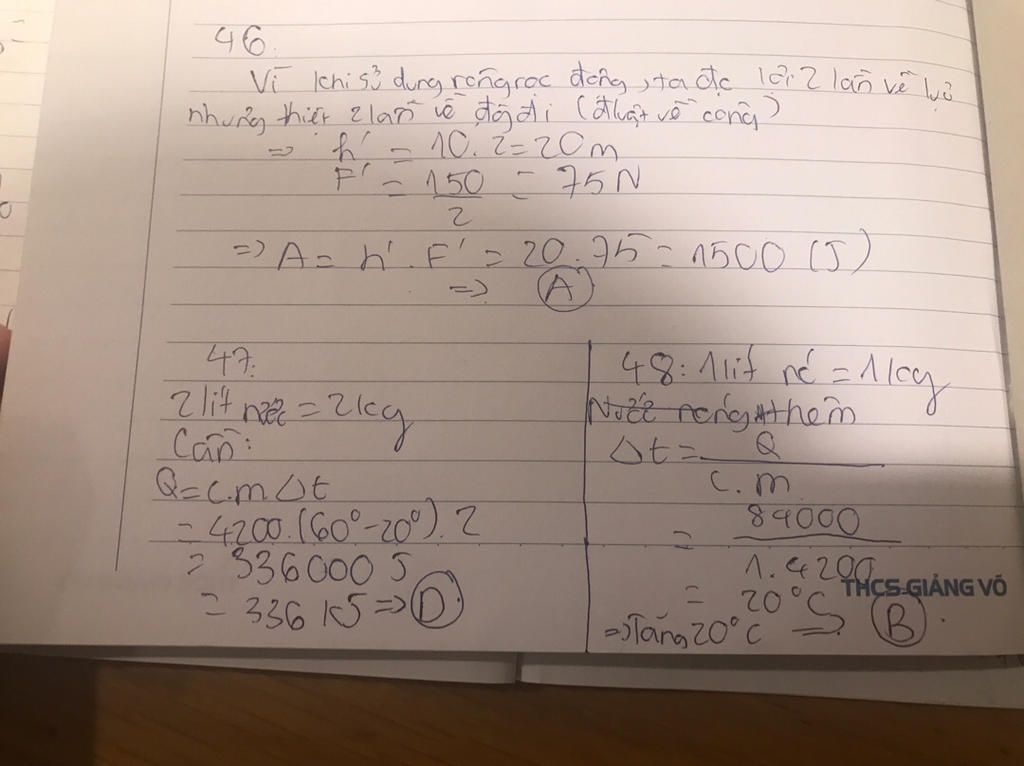 46.
Vì khi sử dụng ròng rọc động, ta đc lợi 2 lần về lực
nhưng thiệt 2 lần về độ đi (đluật về công)
=> h' = 10.2 = 20m
F' = 150/2 = 75N
=> A = h'.F' = 20.75 = 1500 (J)
=> A
47:
2 lít nước = 2kg
Cần:
Q = c.m Δt
= 4200.(60° - 20°).2
= 336000 J
= 336 KJ => D
48: 1 lít nc = 1kg
Nước nóng thêm
Δt = Q/c.m
= 84000/1.4200
= 20°C
=> Tăng 20°C => B.
THCS GIẢNG VÕ